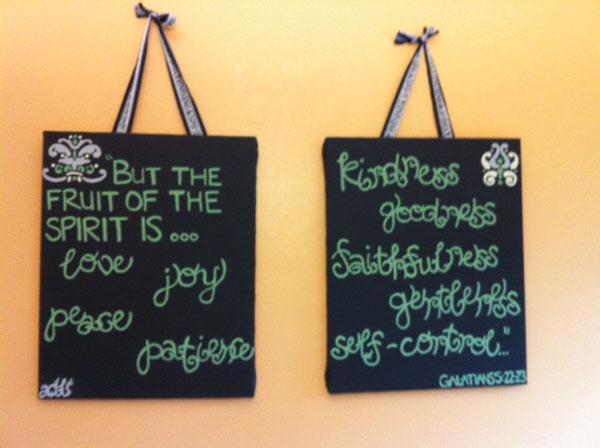 "BUT THE
FRUIT OF THE
SPIRIT IS...
love
joy
peace
patience
kindness
goodness
faithfulness
gentleness
self-control..."
GALATIANS 5:22-23